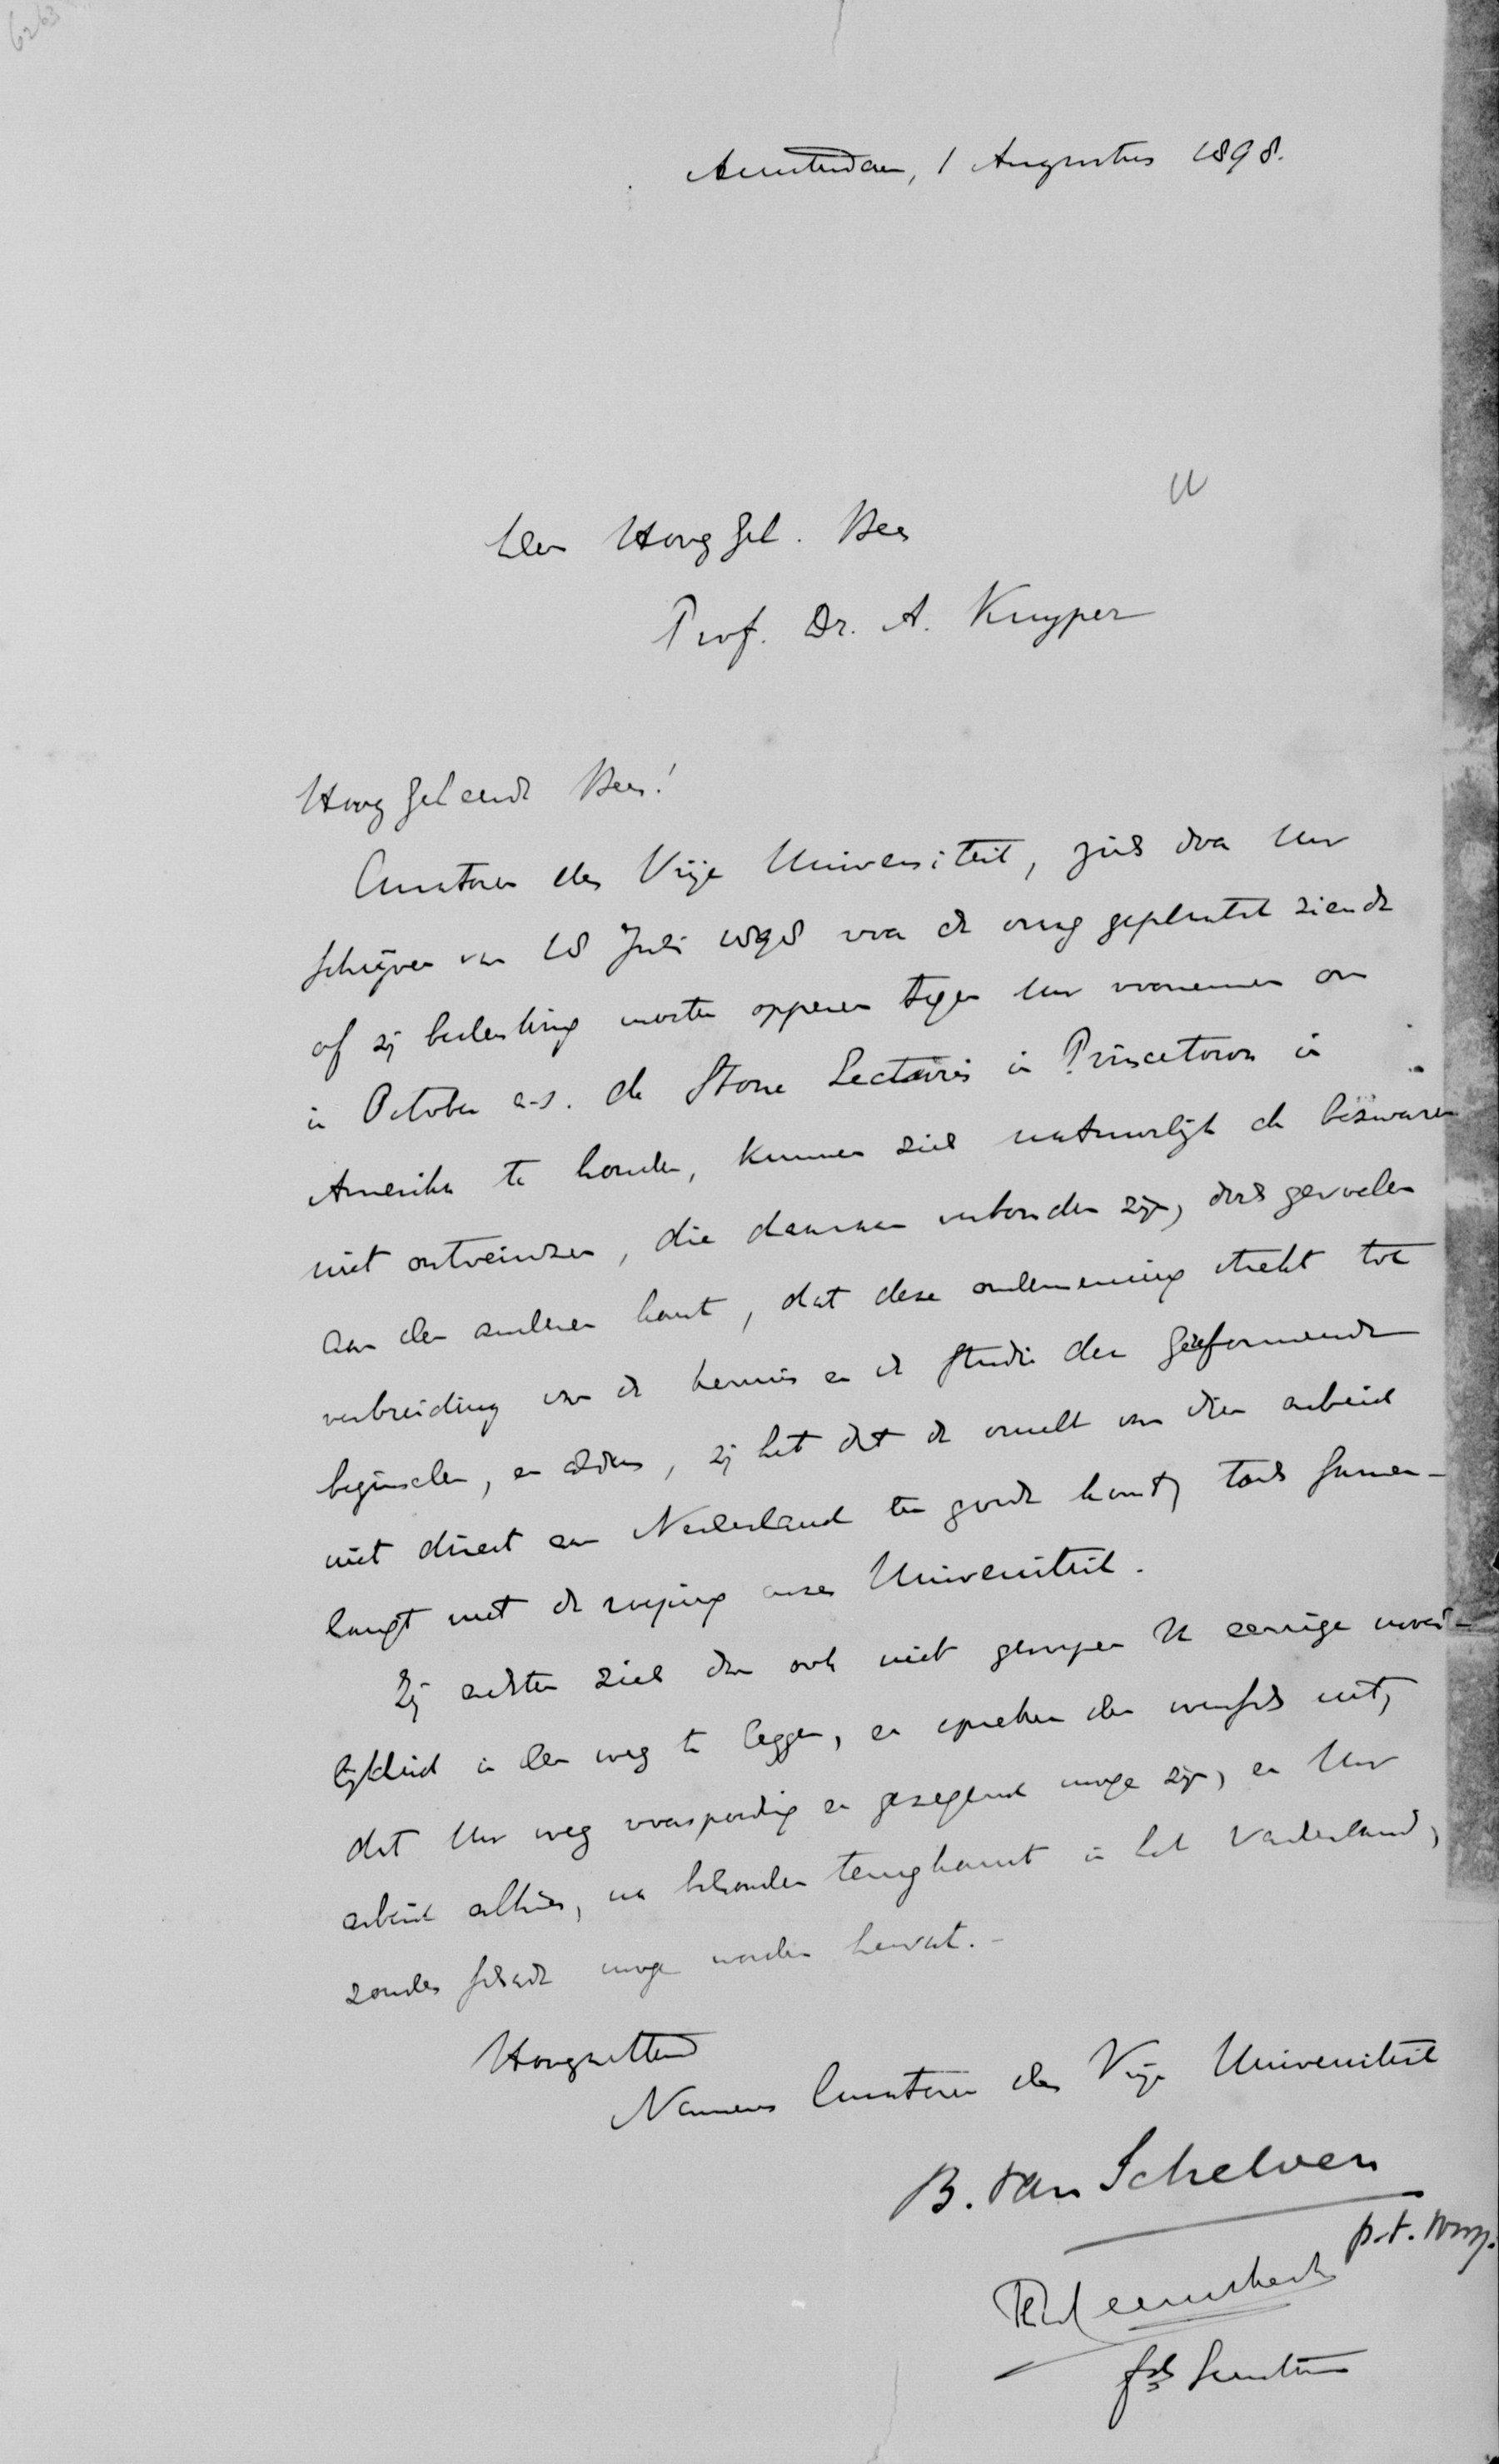 6263
Amsterdam, 1 Augustus 1898.
Den Hooggel. Heer
Prof. Dr. A. Kuyper
Hooggeleerde Heer!
Curatoren der Vrije Universiteit, zich door Uw
schrijven van 18 Juli 1898 voor de vraag geplaatst ziende
of zij bedenking moeten opperen tegen Uw voornemen om
in October a.s. de Stone Lectures in Princetown in
Amerika te houden, kunnen zich natuurlijk de bezwaren
niet ontveinzen, die daaraan verbonden zijn, doch gevoelen
aan den anderen kant, dat deze onderneming strekt tot
verbreiding van de kennis en de studie der Gereformeerde
beginselen, en aldus, zij het dat de vrucht van dien arbeid
niet direct aan Nederland ten goede komt, toch samen-
hangt met de roeping onzer Universiteit.
Zij achten zich dan ook niet geroepen U eenige moei-
lijkheid in den weg te leggen, en spreken den wensch uit,
dat Uw weg voorspoedig en gezegend moge zijn, en Uw
arbeid alhier, na behouden terugkomst in het Vaderland,
zonder schade moge worden hervat. -
Hoogachtend
Namens Curatoren der Vrije Universiteit
B. van Schelven
p.t.
Th Heemskerk
Secretaris